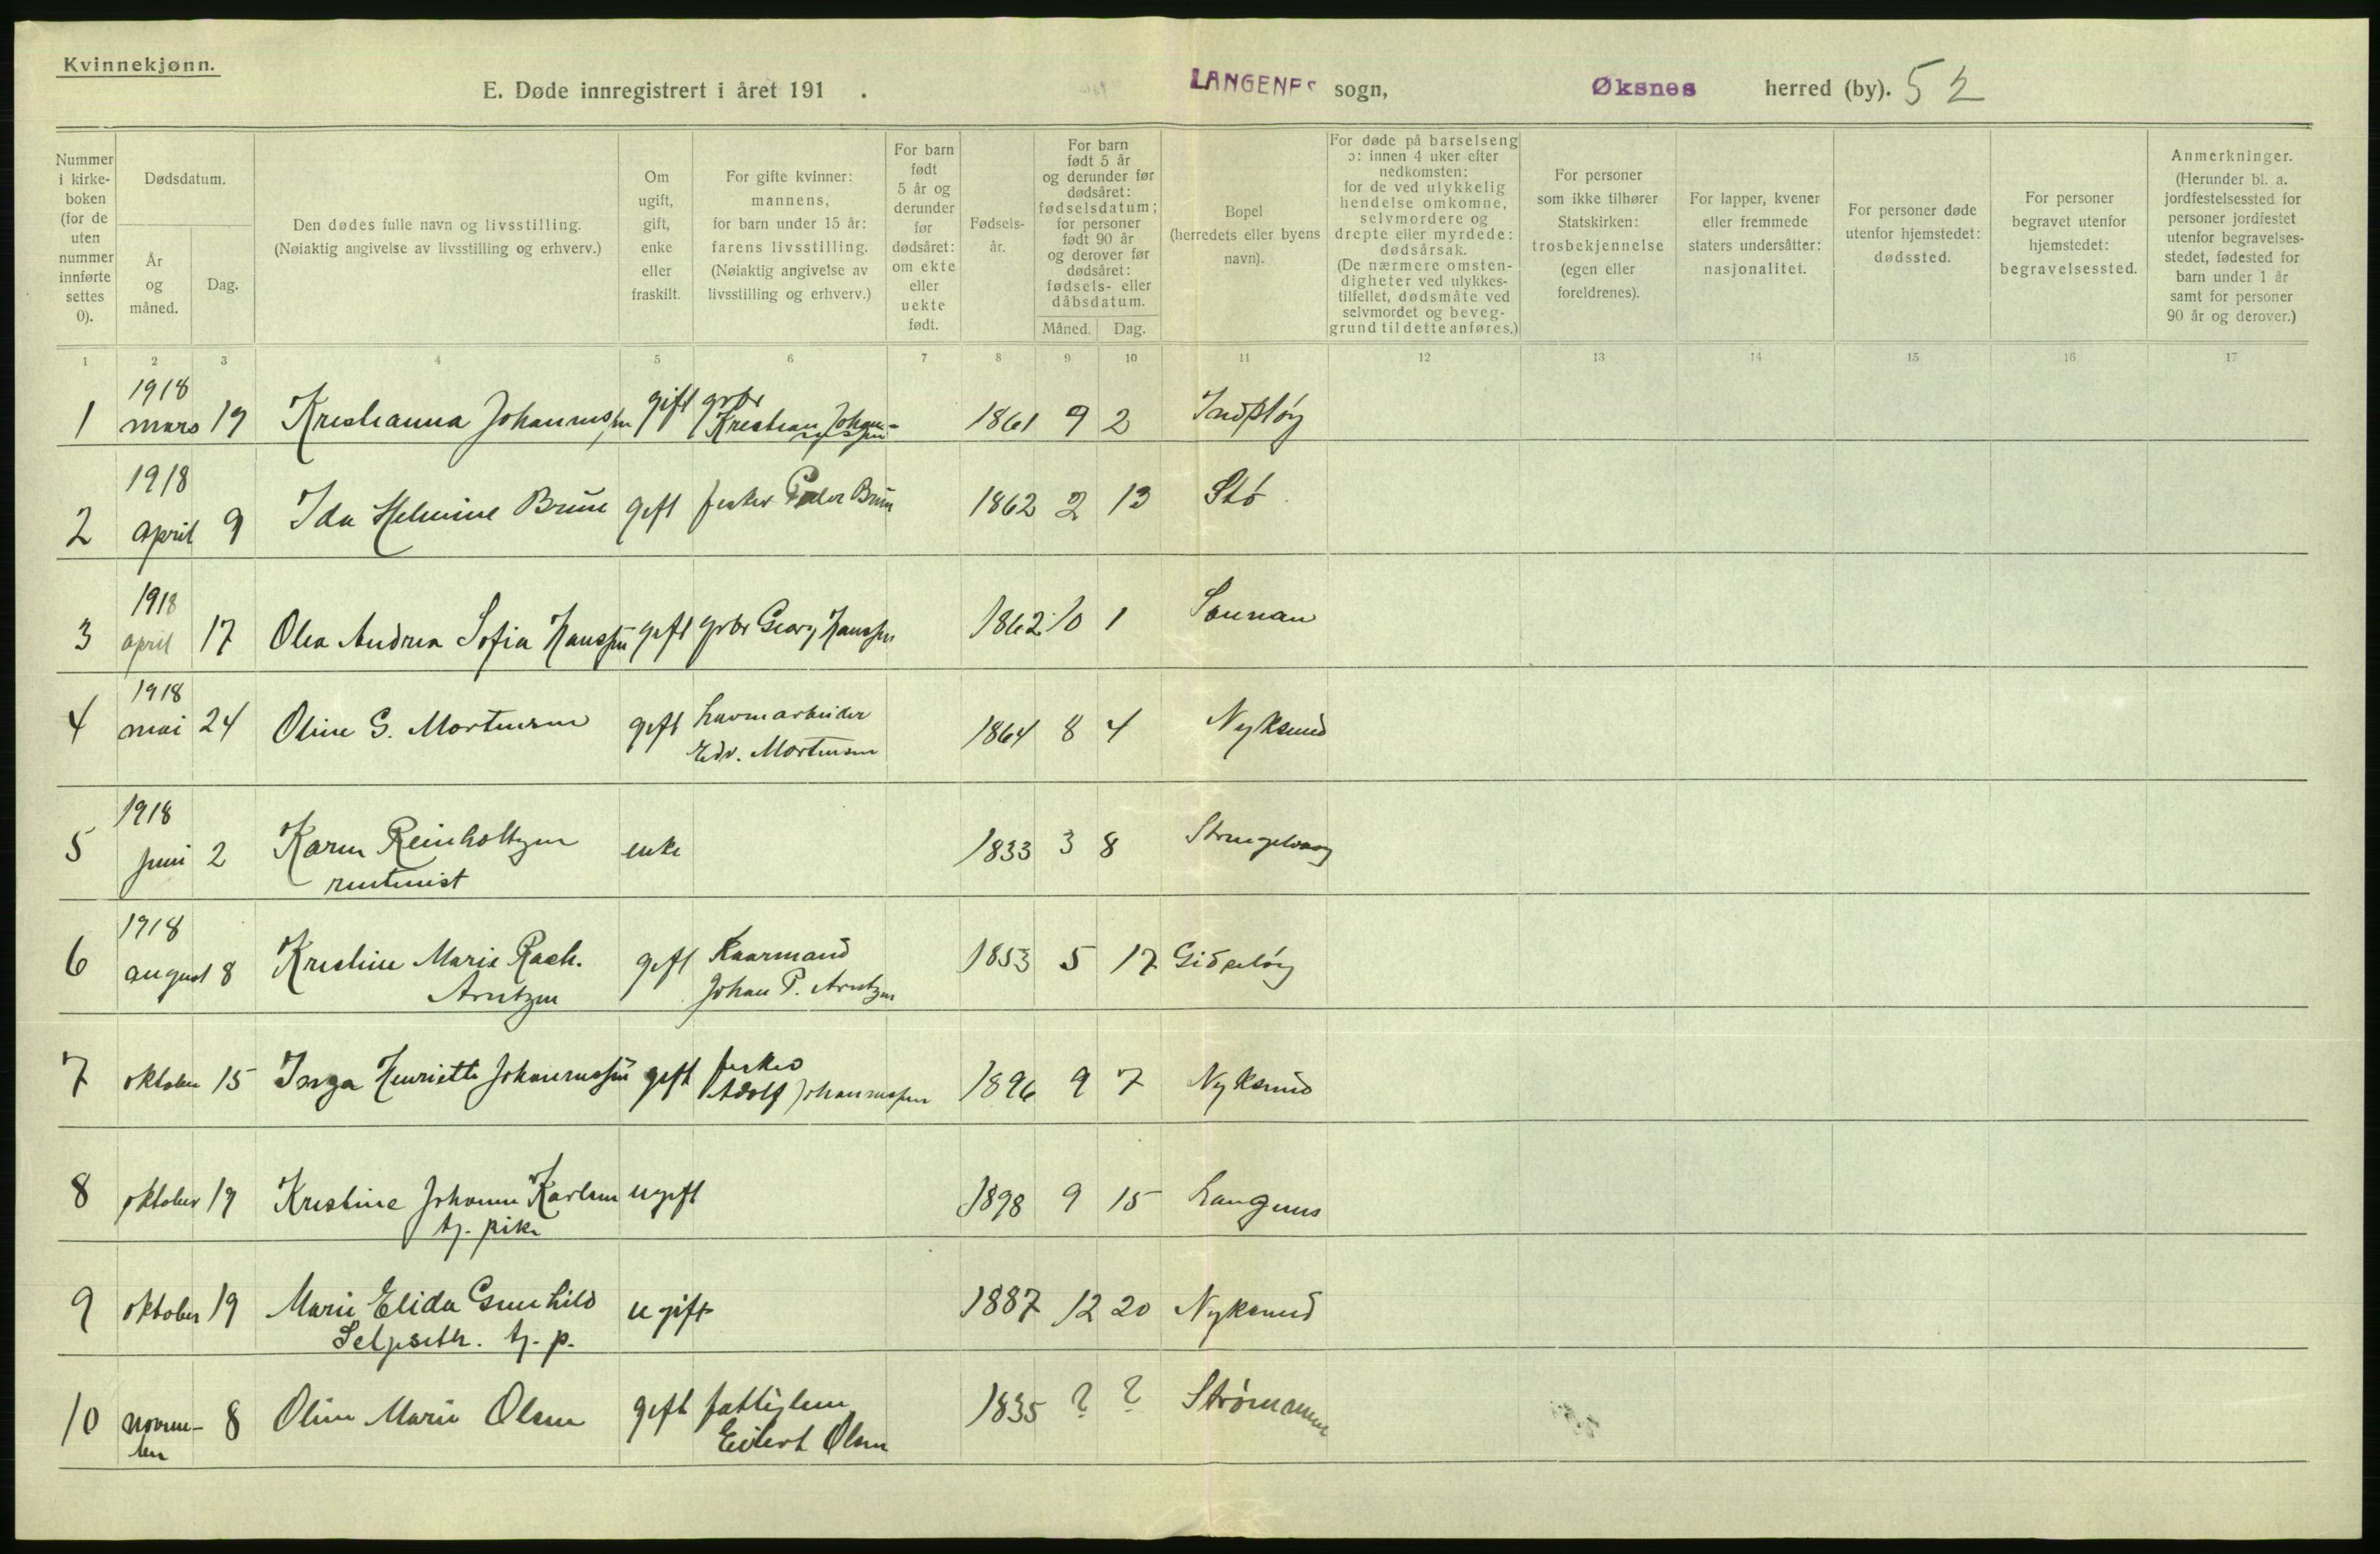 Kvinnekjønn.
E. Døde innregistrert i året 191 . LANGENES sogn, Øksnes herred (by). 52
Nummer i kirkeboken (for de uten nummer innførte settes 0).
Dødsdatum.
År og måned.
Dag.
Den dødes fulle navn og livsstilling.
(Nøiaktig angivelse av livsstilling og erhverv.)
Om ugift, gift, enke eller fraskilt.
For gifte kvinner: mannens, for barn under 15 år: farens livsstilling. (Nøiaktig angivelse av livsstilling og erhverv.)
For barn født 5 år og derunder før dødsåret: om ekte eller uekte født.
Fødsels-år.
For barn født 5 år og derunder før dødsåret: fødselsdatum; for personer født 90 år og derover før dødsåret: fødsels- eller dåbsdatum.
Måned. Dag.
Bopel (herredets eller byens navn).
For døde på barselseng ɔ: innen 4 uker efter nedkomsten: for de ved ulykkelig hendelse omkomne, selvmordere og drepte eller myrdede: dødsårsak. (De nærmere omsten-digheter ved ulykkes-tilfellet, dødsmåte ved selvmordet og beveg-grund til dette anføres.)
For personer som ikke tilhører Statskirken: trosbekjennelse (egen eller foreldrenes).
For lapper, kvener eller fremmede staters undersåtter: nasjonalitet.
For personer døde utenfor hjemstedet: dødssted.
For personer begravet utenfor hjemstedet: begravelsessted.
Anmerkninger. (Herunder bl. a. jordfestelsessted for personer jordfestet utenfor begravelses-stedet, fødested for barn under 1 år samt for personer 90 år og derover.)
1 2 3 4 5 6 7 8 9 10 11 12 13 14 15 16 17
1918
1 mars 19 Kristianna Johannessen gift grbr Kristian Johan-nessen 1861 9 2
1918
2 april 9 Ida Helmine Brun gift fisker Peder Brun 1862 2 13 Stø
1918
3 april 17 Olea Andrea Sofia Hanssen gift grbr Georg Hanssen 1862 10 1 Sounan
1918
4 mai 24 Oline G. Mortensen gift havnarbeider
Edv. Mortensen 1864 8 4 Nyksund
1918
5 juni 2 Karen Reinholtzen enke 1833 3 8 Strengelvaag
rentenist
1918
6 august 8 Kristine Marie Rach. gift Kaarmand 1853 5 17
Arntzen Johan P. Arntzen
7 oktober 15 Inga Henriette Johannessen gift fisker
Adolf Johannessen 1896 9 7 Nyksund
8 oktober 19 Kristine Johanna Karlsen ugift 1898 9 15 Langenes
tj. pike
9 oktober 19 Marie Elida Gunhild ugift 1887 12 20 Nyksund
Seljeseth. tj. p.
10 novem-ber 8 Oline Marie Olsen gift fattiglem
Eilert Olsen 1835 ? ? Strømmen